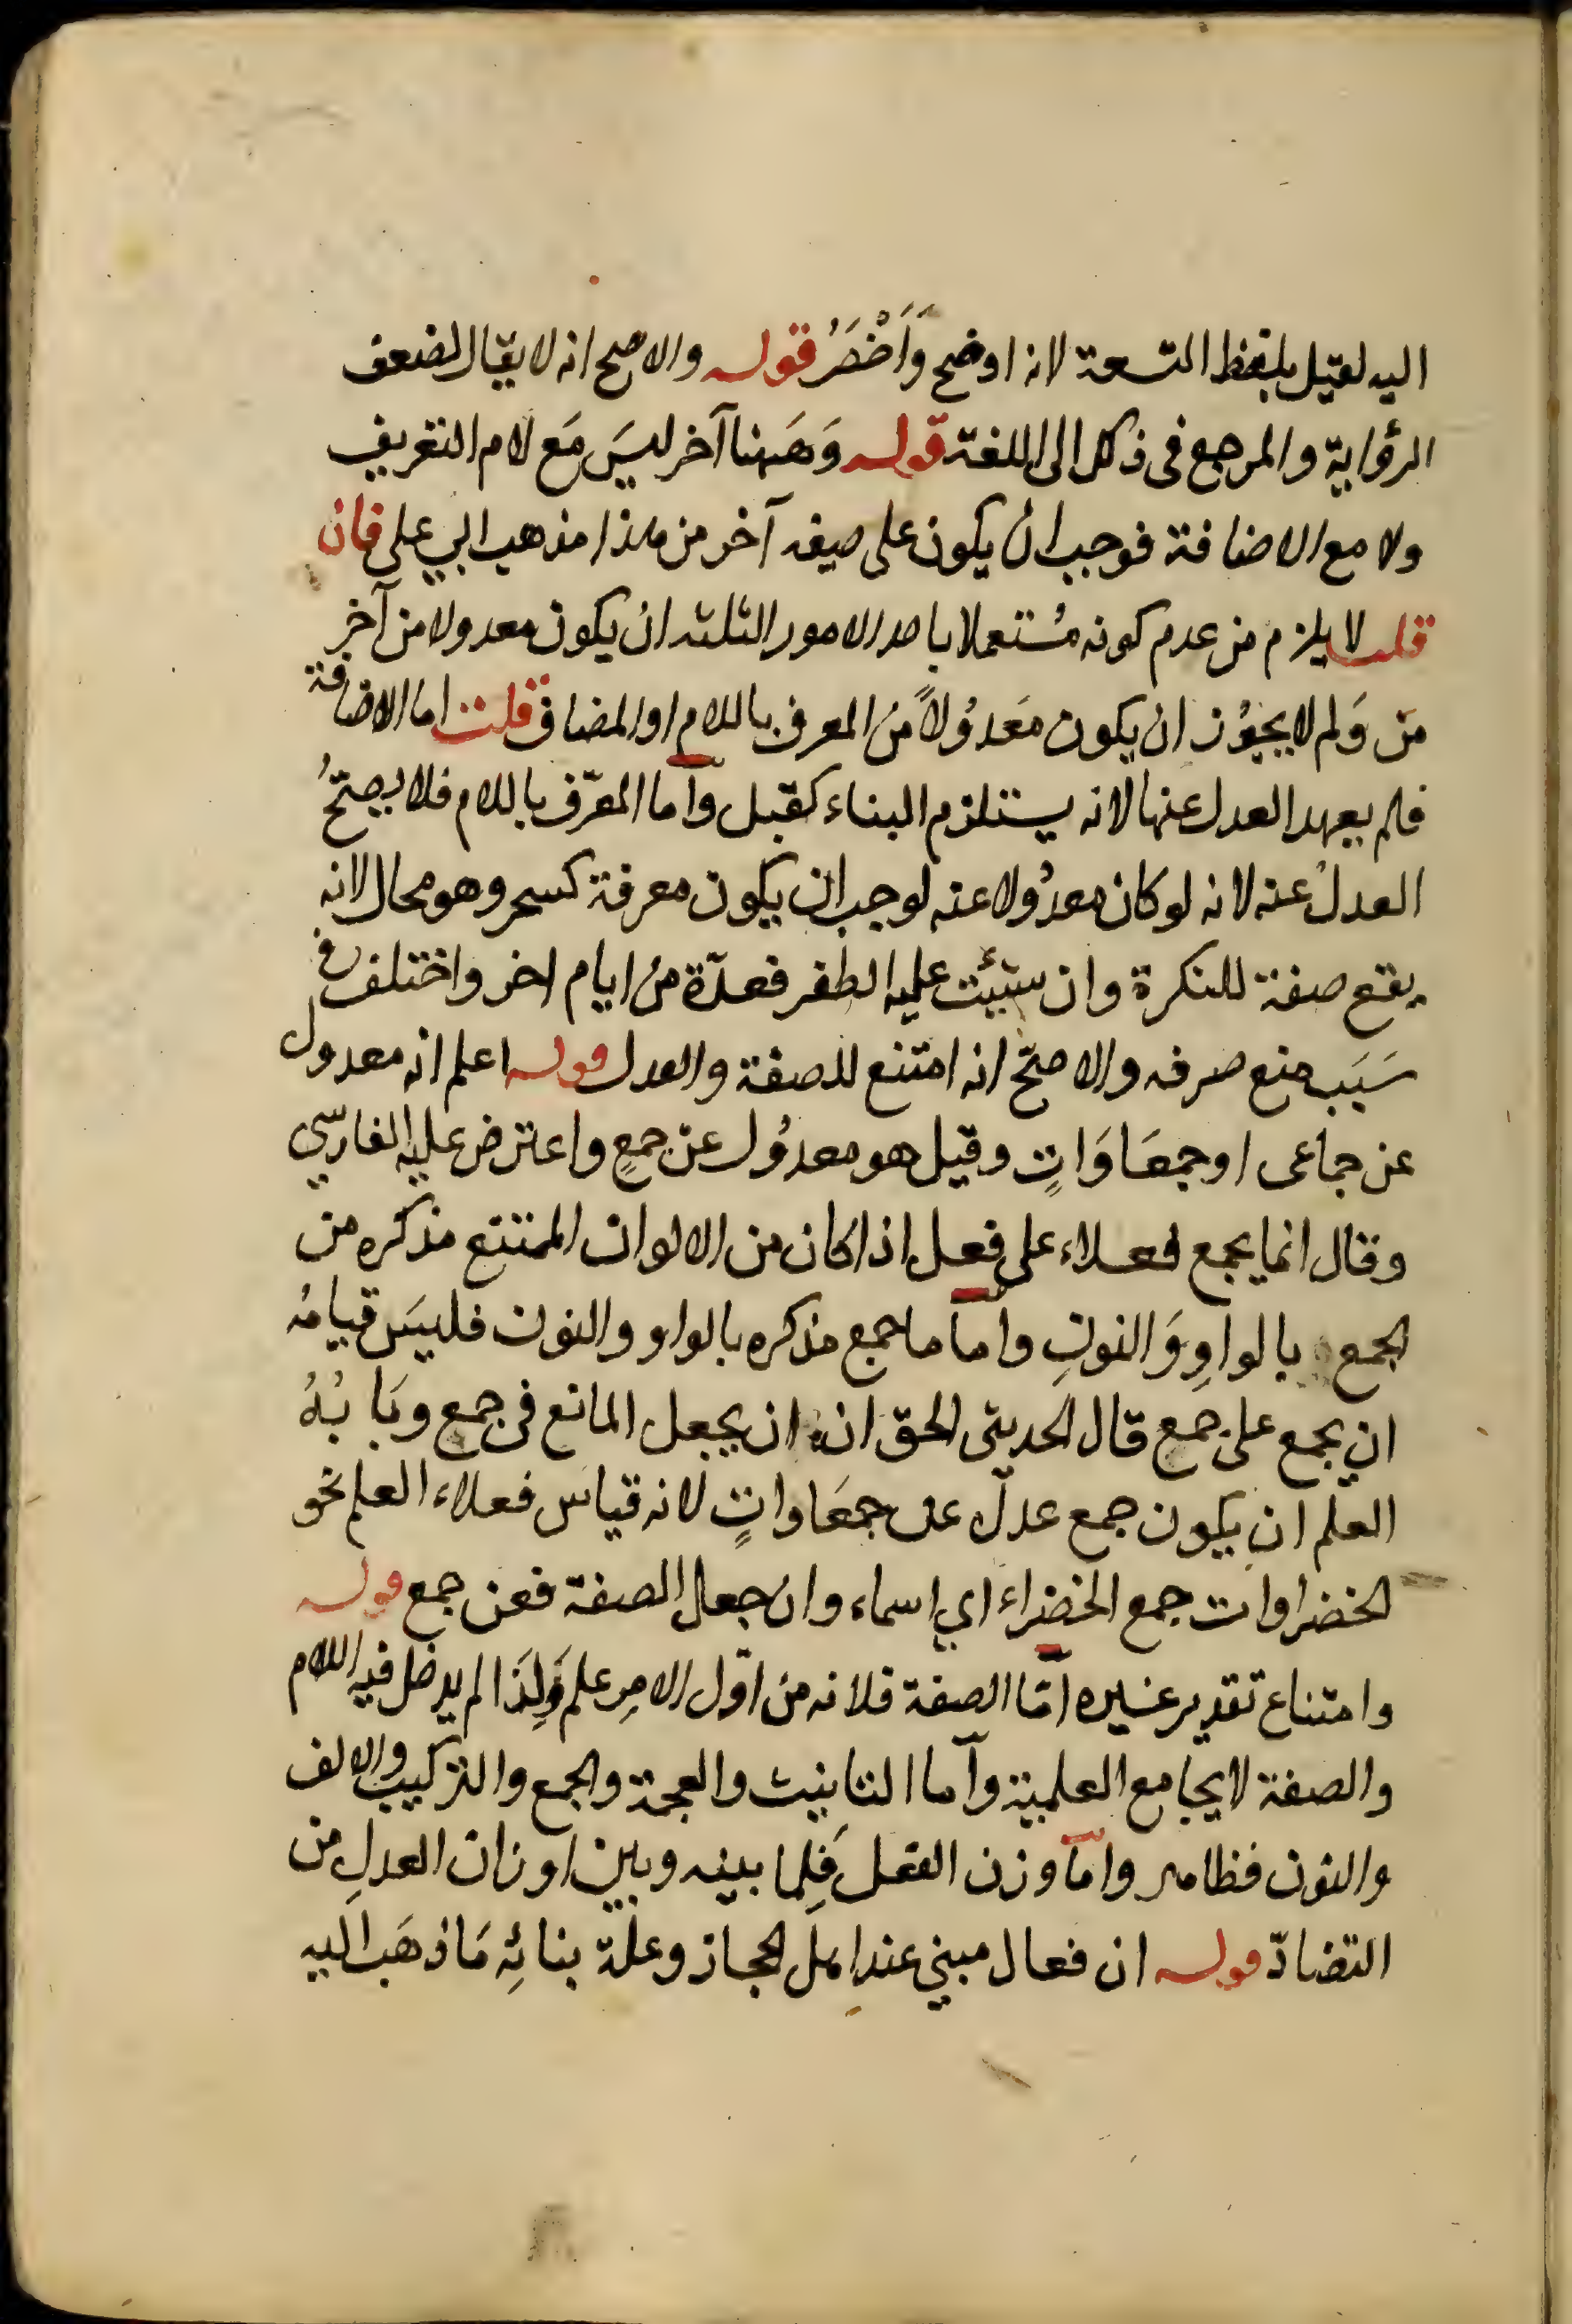 اليه لقيل بلفظ التسعة لانه اوضح وَاَخْصَرُ قوله والاصح انه لا يقال لضعف
الرؤاية والمرجع فى ذلك الى اللغة قوله وَهَهنا آخر ليسَ مَع لام التعريف
ولا مع الاضافة فوجب ان يكون على صيغه آخر من هذا مذهب ابي على فان
قلت لا يلزم من عدم كونه مُستعملا باحد الامور الثلثه ان يكون معدولا من آخر
من وَلم لا يجوُز ان يكون مَعدوُلاً من المعرف باللام او المضاف قلت اما الاضافة
فلم يعهد العدل عنها لانه يستلزم البناء كقبل وآما المعرّف باللام فلا يصحّ
العدلُ عنه لانه لو كان معدوُلا عنه لوجب ان يكون معرفة كسحر وهو محال لانه
يقع صفة للنكرة وان سئبت عليه الطفر فعدّة من ايام اخر واختلف فى
سَبَب منع صرفه والاصحّ انه امتنع للصفة والعدل قوله اعلم انه معدول
عن جماعى او جمعَاوَاتٍ وقيل هو معدوُل عن جمعٍ واعترض عليه الفارسي
وقال انما يجمع فعلاء على فعل اذا كان من الالوان الممتنع مذكره من
الجمع بالواوِ وَالنونِ واما ما جمع مذكره بالواو والنون فليسَ قيامُه
ان يجمع على جمع قال الحديثى الحق ان ان يجعل المانع فى جمع وبَابُهُ
العلم ان يكون جمع عدل عن جمعَاواتٍ لانه قياس فعلاء العلم نحو
الخضراوات جمع الخضراء اي اسماء وان جعل الصفة فعن جمع قوله
وامتناع تقدير غيره امّا الصفة فلانه من اوّل الامرِ علم وَلِذَا لم يدخل فيه اللام
والصفة لا يجامع العلمية وآما التانيث والعجمة والجمع والتركيب والالف
والنون فظاهر وامّا وزن الفعل فَلِما بينه وبين اوزان العدلِ من
التضادّ قوله ان فعال مبني عند اهل الحجاز وعلة بنائِه مَا ذهَب اليه